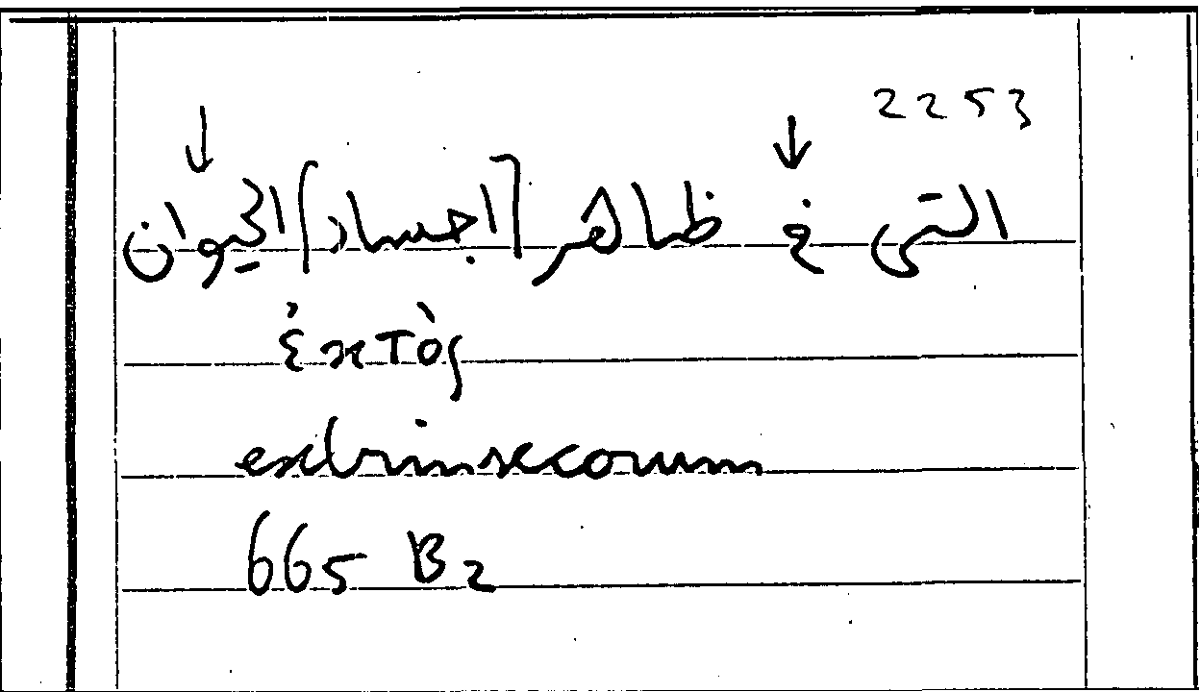 2253
↓ ↓
التى فى ظاهر [اجساد] الحيوان
ἐκτὸς
extrinsecorum
665 B2